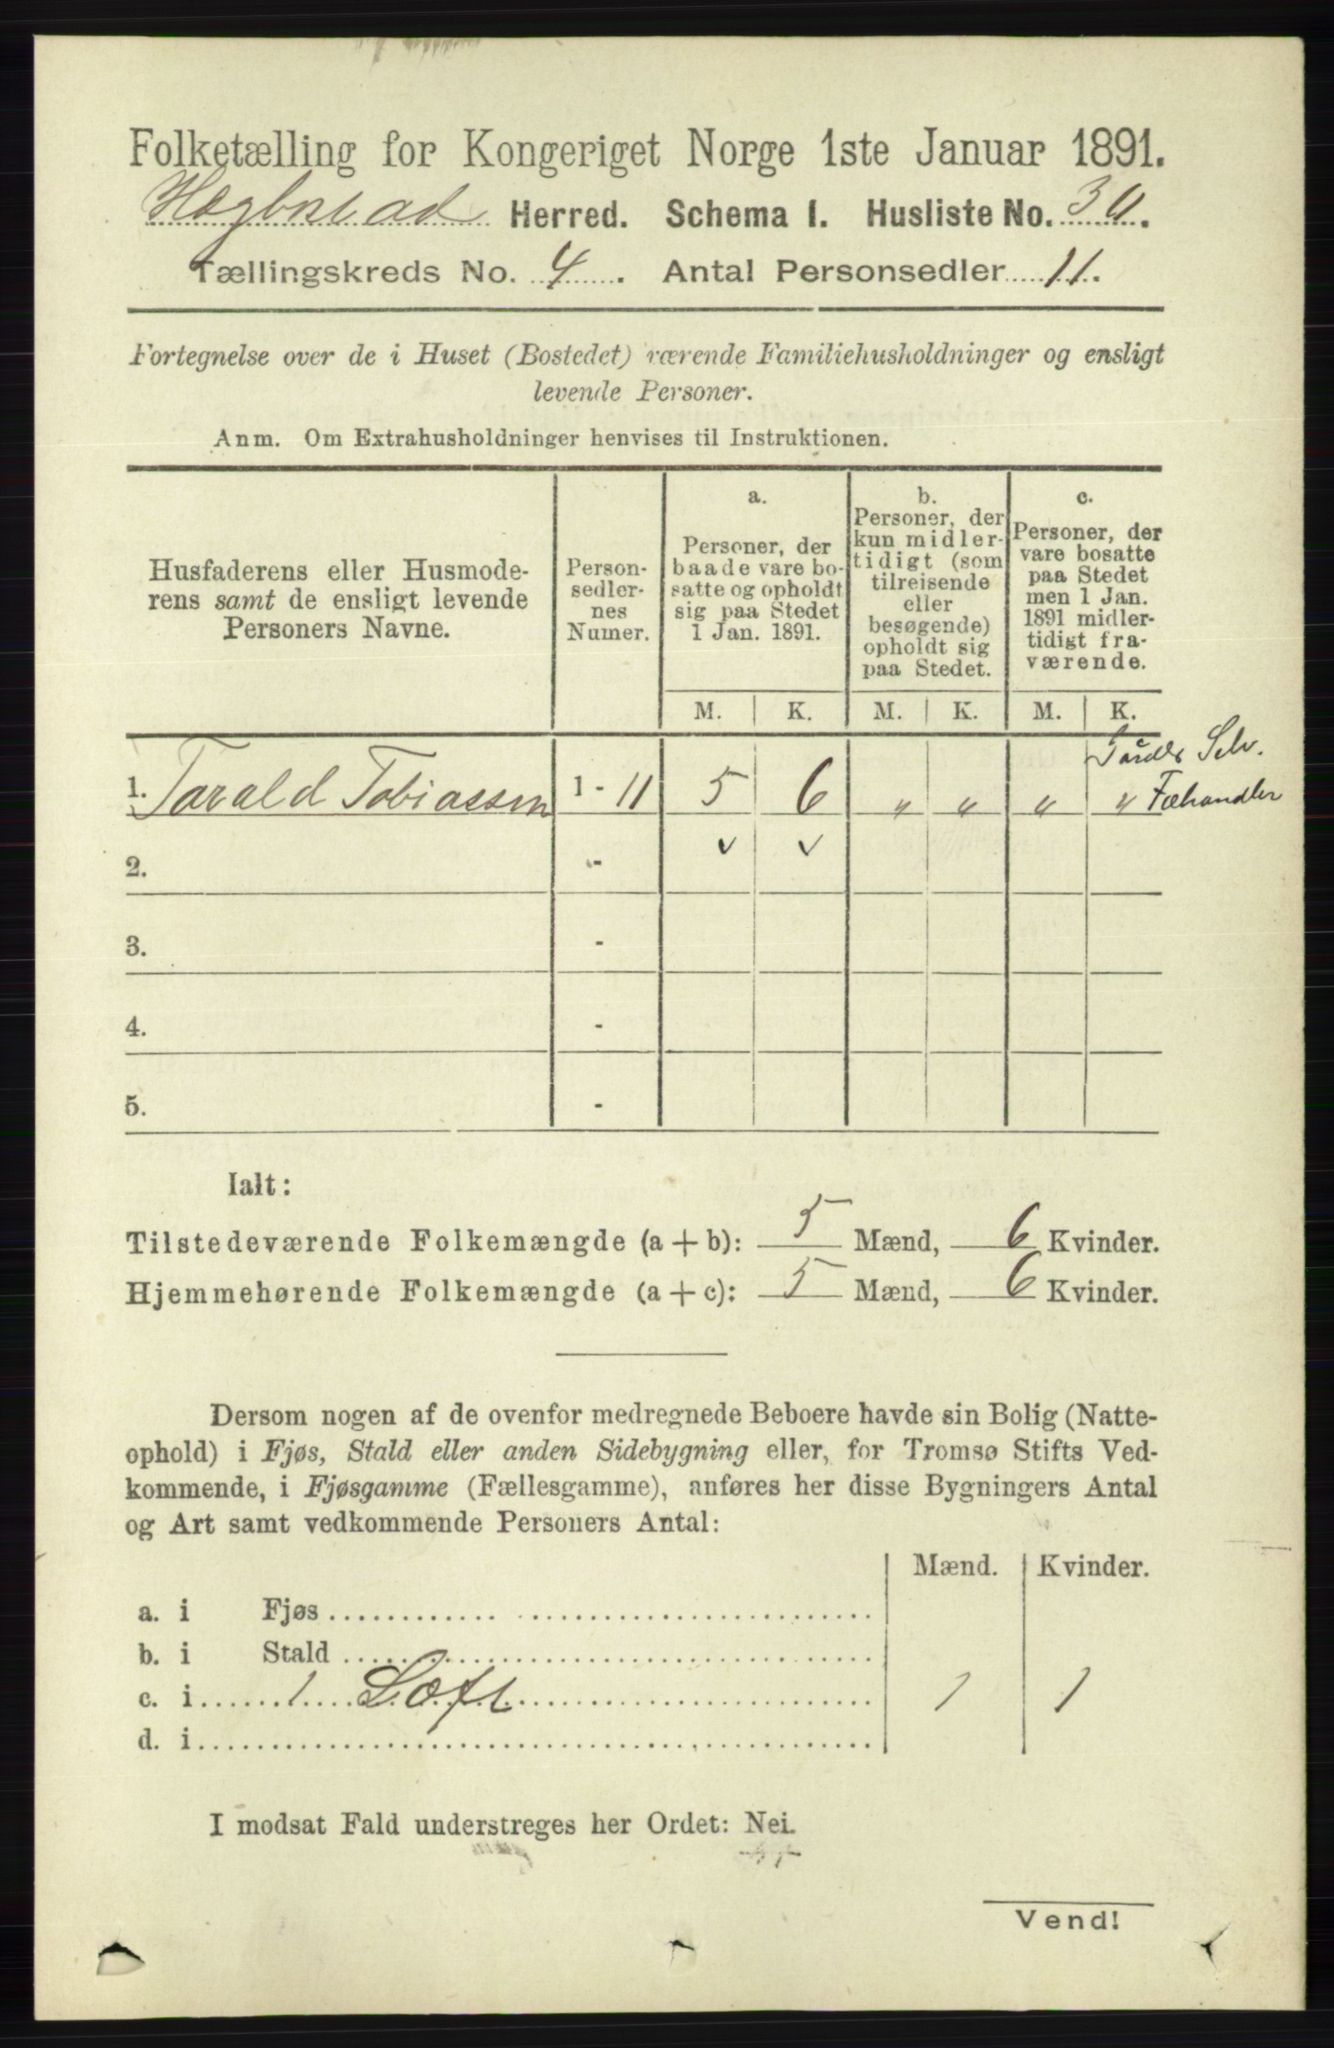 Folketælling for Kongeriget Norge 1ste Januar 1891.
Hægbostad Herred. Schema I. Husliste No.
Tællingskreds No. 4. Antal Personsedler 11.
Fortegnelse over de i Huset (Bostedet) værende Familiehusholdninger og ensligt
levende Personer.
Anm. Om Extrahusholdninger henvises til Instruktionen.
Husfaderens eller Husmode-
rens samt de ensligt levende
Personers Navne.
Person-
sedler-
nes
Numer.
a.
Personer, der
baade vare bo-
satte og opholdt
sig paa Stedet
1 Jan. 1891.
b.
Personer, der
kun midler-
tidigt (som
tilreisende
eller
besøgende)
opholdt sig
paa Stedet.
c.
Personer, der
vare bosatte
paa Stedet
men 1 Jan.
1891 midler-
tidigt fra-
værende.
M. K. M. K. M. K.
Selv.
1. Tarald Tobiassen 1 - 11 5 6 " " " " Fæhandler
2. - ✓ ✓
3. -
4. -
5. -
Ialt:
Tilstedeværende Folkemængde (a + b): 5 Mænd, 6 Kvinder.
Hjemmehørende Folkemængde (a + c): 5 Mænd, 6 Kvinder.
Dersom nogen af de ovenfor medregnede Beboere havde sin Bolig (Natte-
ophold) i Fjøs, Stald eller anden Sidebygning eller, for Tromsø Stifts Ved-
kommende, i Fjøsgamme (Fællesgamme), anføres her disse Bygningers Antal
og Art samt vedkommende Personers Antal:
Mænd. Kvinder.
a. i Fjøs
b. i Stald
c. i 1 Loft 1 1
d. i
I modsat Fald understreges her Ordet: Nei.
Vend!